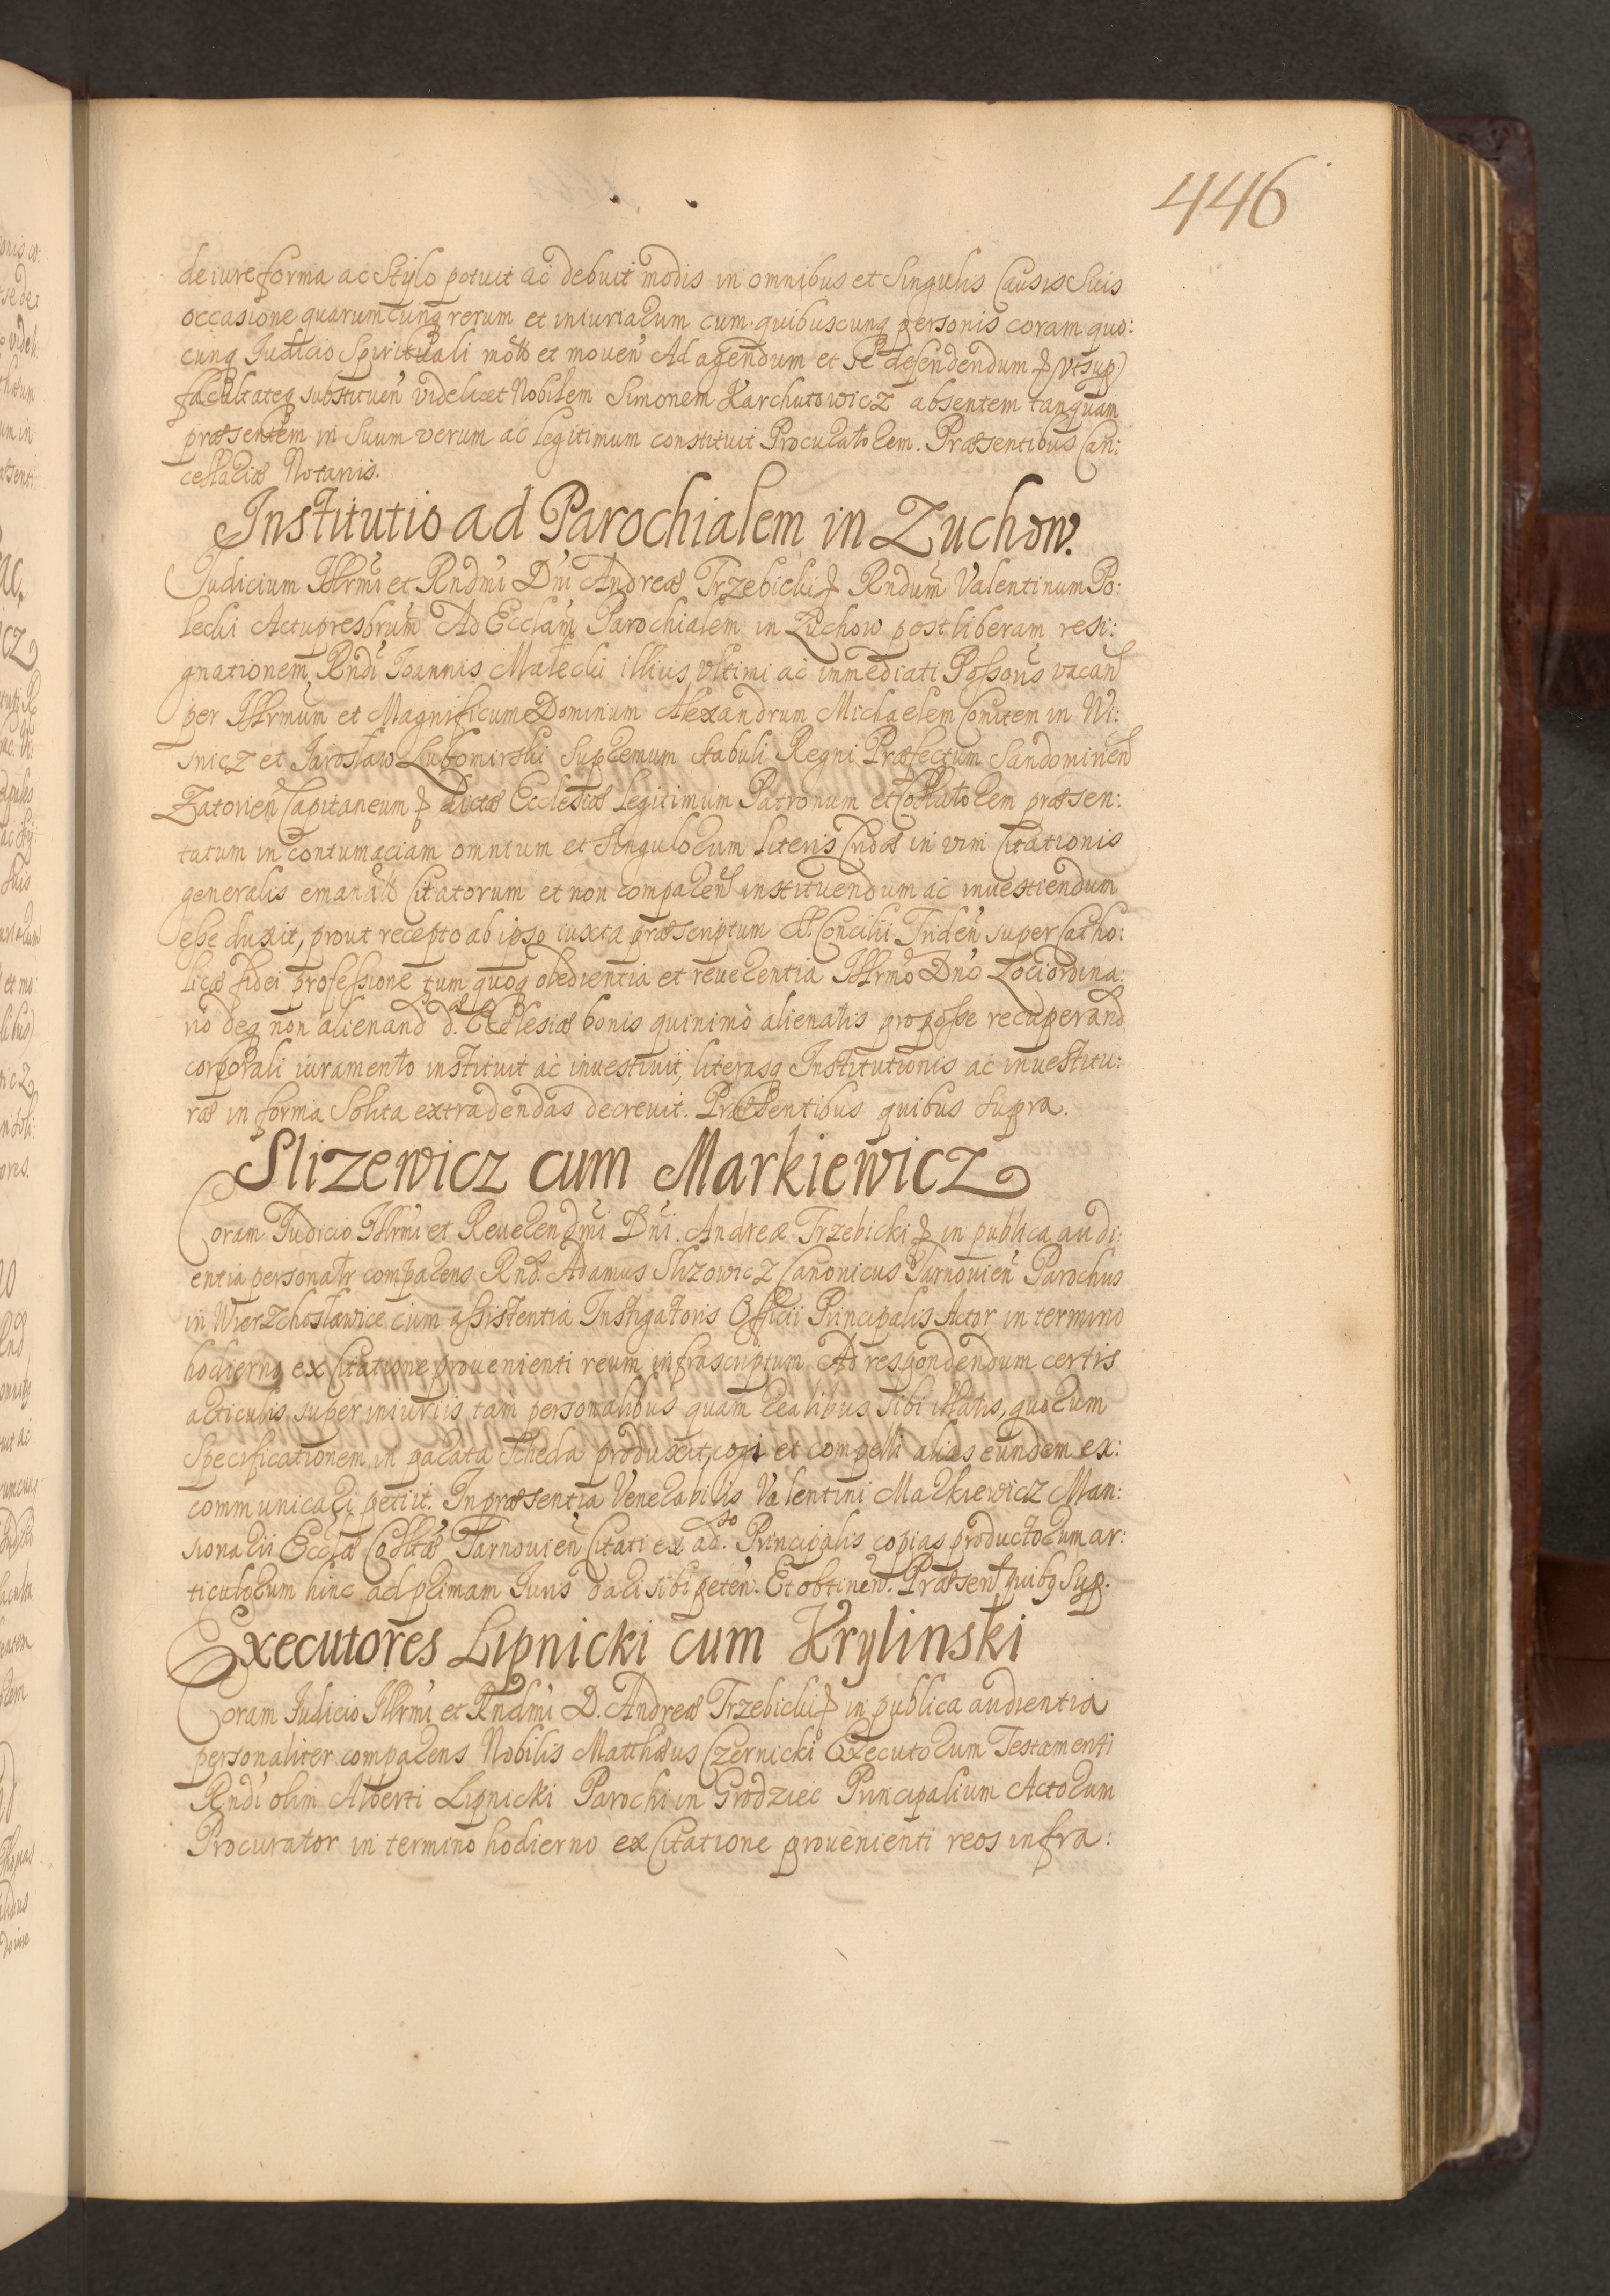 446
de iure forma ac Stylo potuit ac debuit modis in omnibus et Singulis Causis Suis
occasione quarumcunq rerum et iniuriarum cum quibuscunq personis coram quo:
cunq Judicio Spirituali moto et mouen Ad agendum et se defendendum (vt sup)
facultateq substituen videlicet Nobilem Simonem Karchutowicz absentem tanquam
præsentem in Suum verum ac legitimum constituit Procuratorem. Præsentibus Can:
cellariæ Notariis.
Institutio ad Parochialem in Zuchow.
Judicium Illrmi et Rndmi Dni Andreæ Trzebicki Rndum Valentinum Po:
lecki Actupresbrum Ad Ecclam Parochialem in Zuchow post liberam resi:
gnationem Rndi Joannis Małecki illius vltimi ac immediati Possoris vacan
per Illrmum et Magnificum Dominum Alexandrum Michaelem Comitem in Wi:
snicz et Jarosław Lubomirski Supremum stabuli Regni Præfectum Sandomirien
Zatorien Capitaneum dictæ Ecclesiæ legitimum Patronum et Collatorem præsen:
tatum in contumaciam omnium et Singulorum literis Cridæ in vim Citationis
generalis emanat Citatorum et non comparen instituendum ac inuestiendum
esse duxit, prout recepto ab ipso iuxta præscriptum S. Concilii Triden super Catho:
licæ fidei professione tum quoq obedientia et reuerentia Illrmo Dno Lociordina:
rio deq non alienand d. Ecclesiæ bonis quinimo alienatis pro posse recuperand
corporali iuramento instituit ac inuestiuit, literasq Institutionis ac inuestitu:
ræ in forma Solita extradendas decreuit. Præsentibus quibus supra.
Slizewicz cum Markiewicz
Coram Judicio Illrmi et Reuerendmi Dni Andreæ Trzebicki in publica audi:
entia personalr comparens Rnd. Adamus Slizowicz Canonicus Tarnouien Parochus
in Wierzchosławice cum assistentia Instigatoris Officii Principalis Actor in termino
hodierno ex Citatione prouenienti reum infrascriptum Ad respondendum certis
articulis super iniuriis tam personalibus quam realibus sibi illatis, quorum
Specificationem in parata scheda produxit, cogi et compelli alias eundem ex:
communicari petiit. In præsentia Venerabilis Valentini Markiewicz Man:
sionarii Ecclæ Collttæ Tarnouien Citati ex ad.so Principalis copias productorum ar:
ticulorum hinc ad primam Juris dari sibi peten. Et obtinen. Præsent quibq Sup.
Executores Lipnicki cum Krylinski
Coram Judicio Illrmi et Rndmi D. Andreæ Trzebicki in publica audientia
personaliter comparens Nobilis Matthæus Czernicki Executorum Testamenti
Rndi olim Alberti Lipnicki Parochi in Grodziec Principalium Actorum
Procurator in termino hodierno ex Citatione prouenienti reos infra: